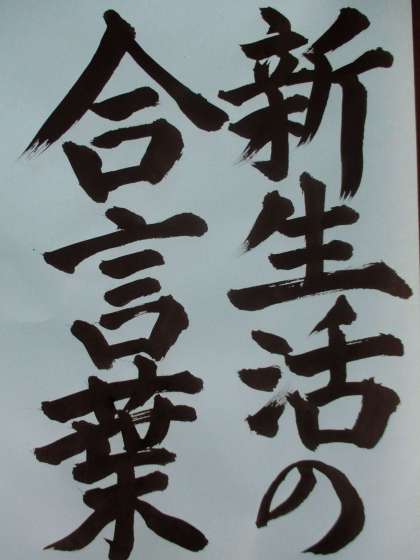 新生活の
合言葉